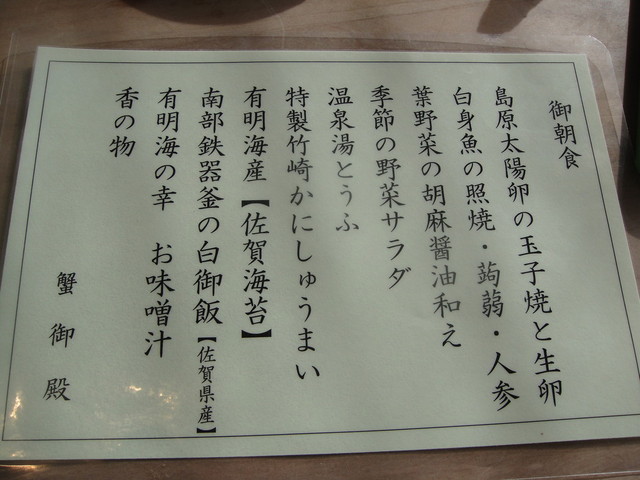 御朝食
島原太陽卵の玉子焼と生卵
白身魚の照焼・蒟蒻・人参
葉野菜の胡麻醤油和え
季節の野菜サラダ
温泉湯とうふ
特製竹崎かにしゅうまい
有明海産【佐賀海苔】
南部鉄器釜の白御飯【佐賀県産】
有明海の幸　お味噌汁
香の物
蟹御殿